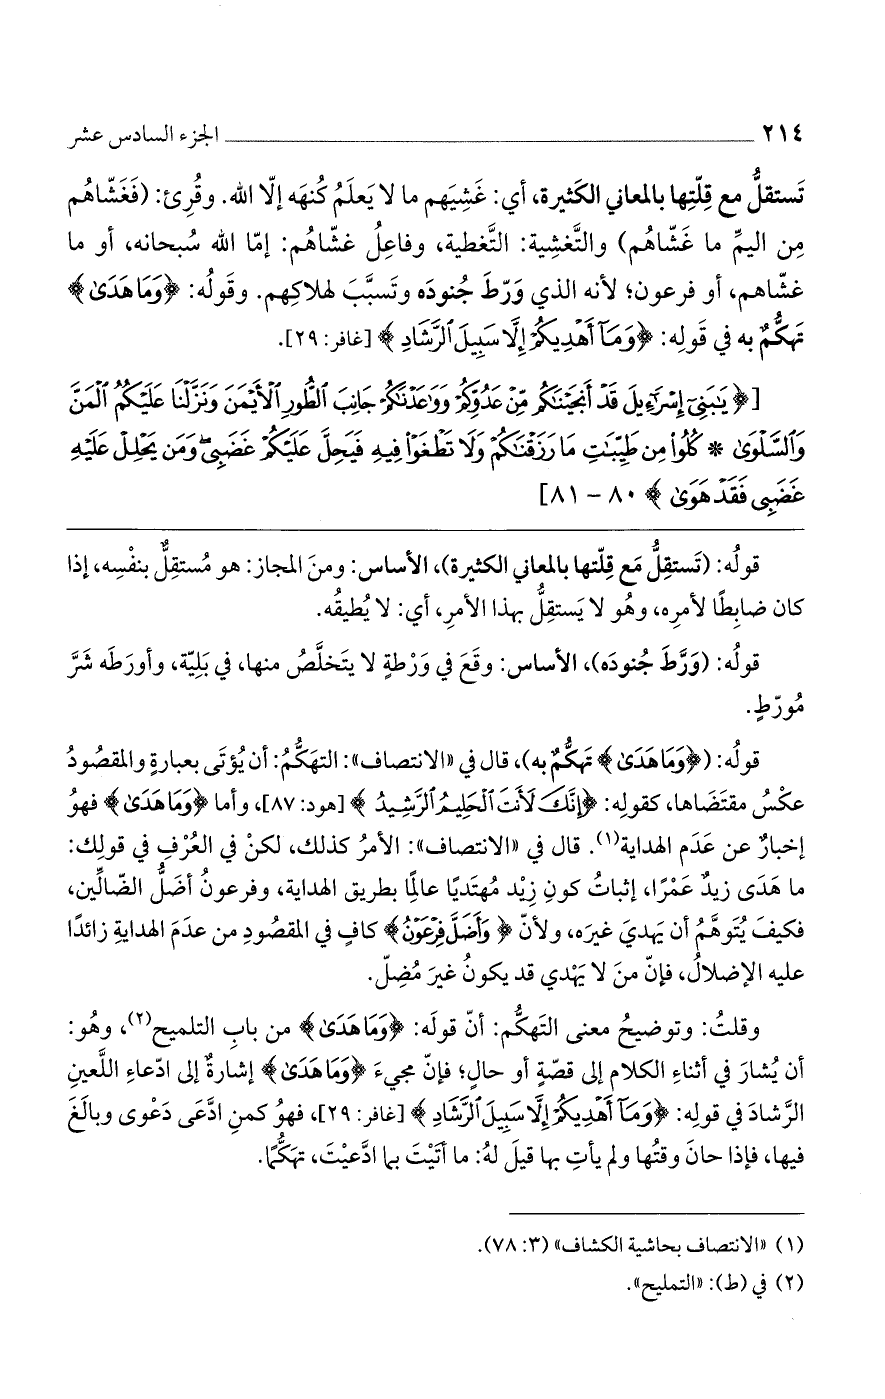 ٢١٤ الجزء السادس عشر
تَستقلُّ مع قِلّتِها بالمعاني الكَثيرة، أي: غَشِيَهم ما لا يَعلَمُ كُنهَه إلّا الله. وقُرِئ: (فَغَشّاهُم
مِن اليمِّ ما غَشّاهُم) والتَّغشِية: التَّغطية، وفاعِلُ غشّاهُم: إمّا الله سُبحانه، أو ما
غشّاهم، أو فرعون؛ لأنه الذي وَرّطَ جُنودَه وتَسبَّبَ لهلاكِهم. وقولُه: ﴿وَمَا هَدَىٰ﴾
تَهكُّمٌ به في قَولِه: ﴿وَمَآ أَهْدِيكُمْ إِلَّا سَبِيلَ ٱلرَّشَادِ﴾ [غافر: ٢٩].
[﴿يَٰبَنِىٓ إِسْرَٰٓءِيلَ قَدْ أَنجَيْنَٰكُم مِّنْ عَدُوِّكُمْ وَوَٰعَدْنَٰكُمْ جَانِبَ ٱلطُّورِ ٱلْأَيْمَنَ وَنَزَّلْنَا عَلَيْكُمُ ٱلْمَنَّ
وَٱلسَّلْوَىٰ * كُلُوا۟ مِن طَيِّبَٰتِ مَا رَزَقْنَٰكُمْ وَلَا تَطْغَوْا۟ فِيهِ فَيَحِلَّ عَلَيْكُمْ غَضَبِى ۖ وَمَن يَحْلِلْ عَلَيْهِ
غَضَبِى فَقَدْ هَوَىٰ﴾ ٨٠ – ٨١]
قولُه: (تَستقِلُّ مَع قِلّتها بالمعاني الكثيرة)، الأساس: ومنَ المجاز: هو مُستقِلٌّ بنفْسِه، إذا
كان ضابِطًا لأمرِه، وهُو لا يَستقِلُّ بهذا الأمرِ، أي: لا يُطيقُه.
قولُه: (وَرَّطَ جُنودَه)، الأساس: وقَعَ في وَرْطةٍ لا يتَخلَّصُ منها، في بَلِيّة، وأورَطَه شَرَّ
مُورّطٍ.
قولُه: (﴿وَمَا هَدَىٰ﴾ تَهكُّمٌ به)، قال في «الانتصاف»: التهَكُّمُ: أن يُؤتَى بعبارةٍ والمقصُودُ
عكْسُ مقتَضَاها، كقولِه: ﴿إِنَّكَ لَأَنتَ ٱلْحَلِيمُ ٱلرَّشِيدُ﴾ [هود: ٨٧]، وأما ﴿وَمَا هَدَىٰ﴾ فهوُ
إخبارٌ عن عَدَم الهداية(١). قال في «الانتصاف»: الأمرُ كذلك، لكنْ في العُرْفِ في قولِك:
ما هَدَى زيدٌ عَمْرًا، إثباتُ كونِ زيْد مُهتَديًا عالِمًا بطريق الهداية، وفرعونُ أضَلُّ الضّالِّين،
فكيفَ يُتَوهَّمُ أن يَهديَ غيرَه، ولأنّ ﴿وَأَضَلَّ فِرْعَوْنُ﴾ كافٍ في المقصُودِ من عدَمَ الهدايةِ زائدًا
عليه الإضلالُ، فإنّ منَ لا يَهْدي قد يكونُ غيرَ مُضِلّ.
وقلتُ: وتوضيحُ معنى التَهكُّم: أنّ قولَه: ﴿وَمَا هَدَىٰ﴾ من بابِ التلميح(٢)، وهُو:
أن يُشارَ في أثناءِ الكلام إلى قصّةٍ أو حالٍ؛ فإنّ مجيءَ ﴿وَمَا هَدَىٰ﴾ إشارةٌ إلى ادّعاءِ اللَّعينِ
الرَّشادَ في قولِه: ﴿وَمَآ أَهْدِيكُمْ إِلَّا سَبِيلَ ٱلرَّشَادِ﴾ [غافر: ٢٩]، فهوُ كمنِ ادَّعَى دَعْوى وبالَغَ
فيها، فإذا حانَ وقتُها ولم يأتِ بها قيلَ لهُ: ما أتَيْتَ بما ادَّعيْتَ، تهكُّمًا.
(١) «الانتصاف بحاشية الكشاف» (٣: ٧٨).
(٢) في (ط): «التمليح».